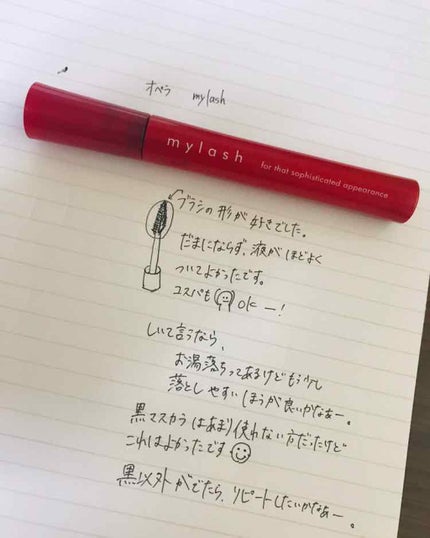 オペラ mylash
mylash for that sophisticated appearance
ブラシの形が好きでした。
だまにならず、液がほどよく
ついてよかったです。
コスパも OK ー!
しいて言うなら、
お湯落ちってあるけどもう少し
落としやすいほうが良いかなぁー。
黒マスカラはあまり使わない方だったけど
これはよかったです
黒以外がでたら、リピートしたいかなぁー。